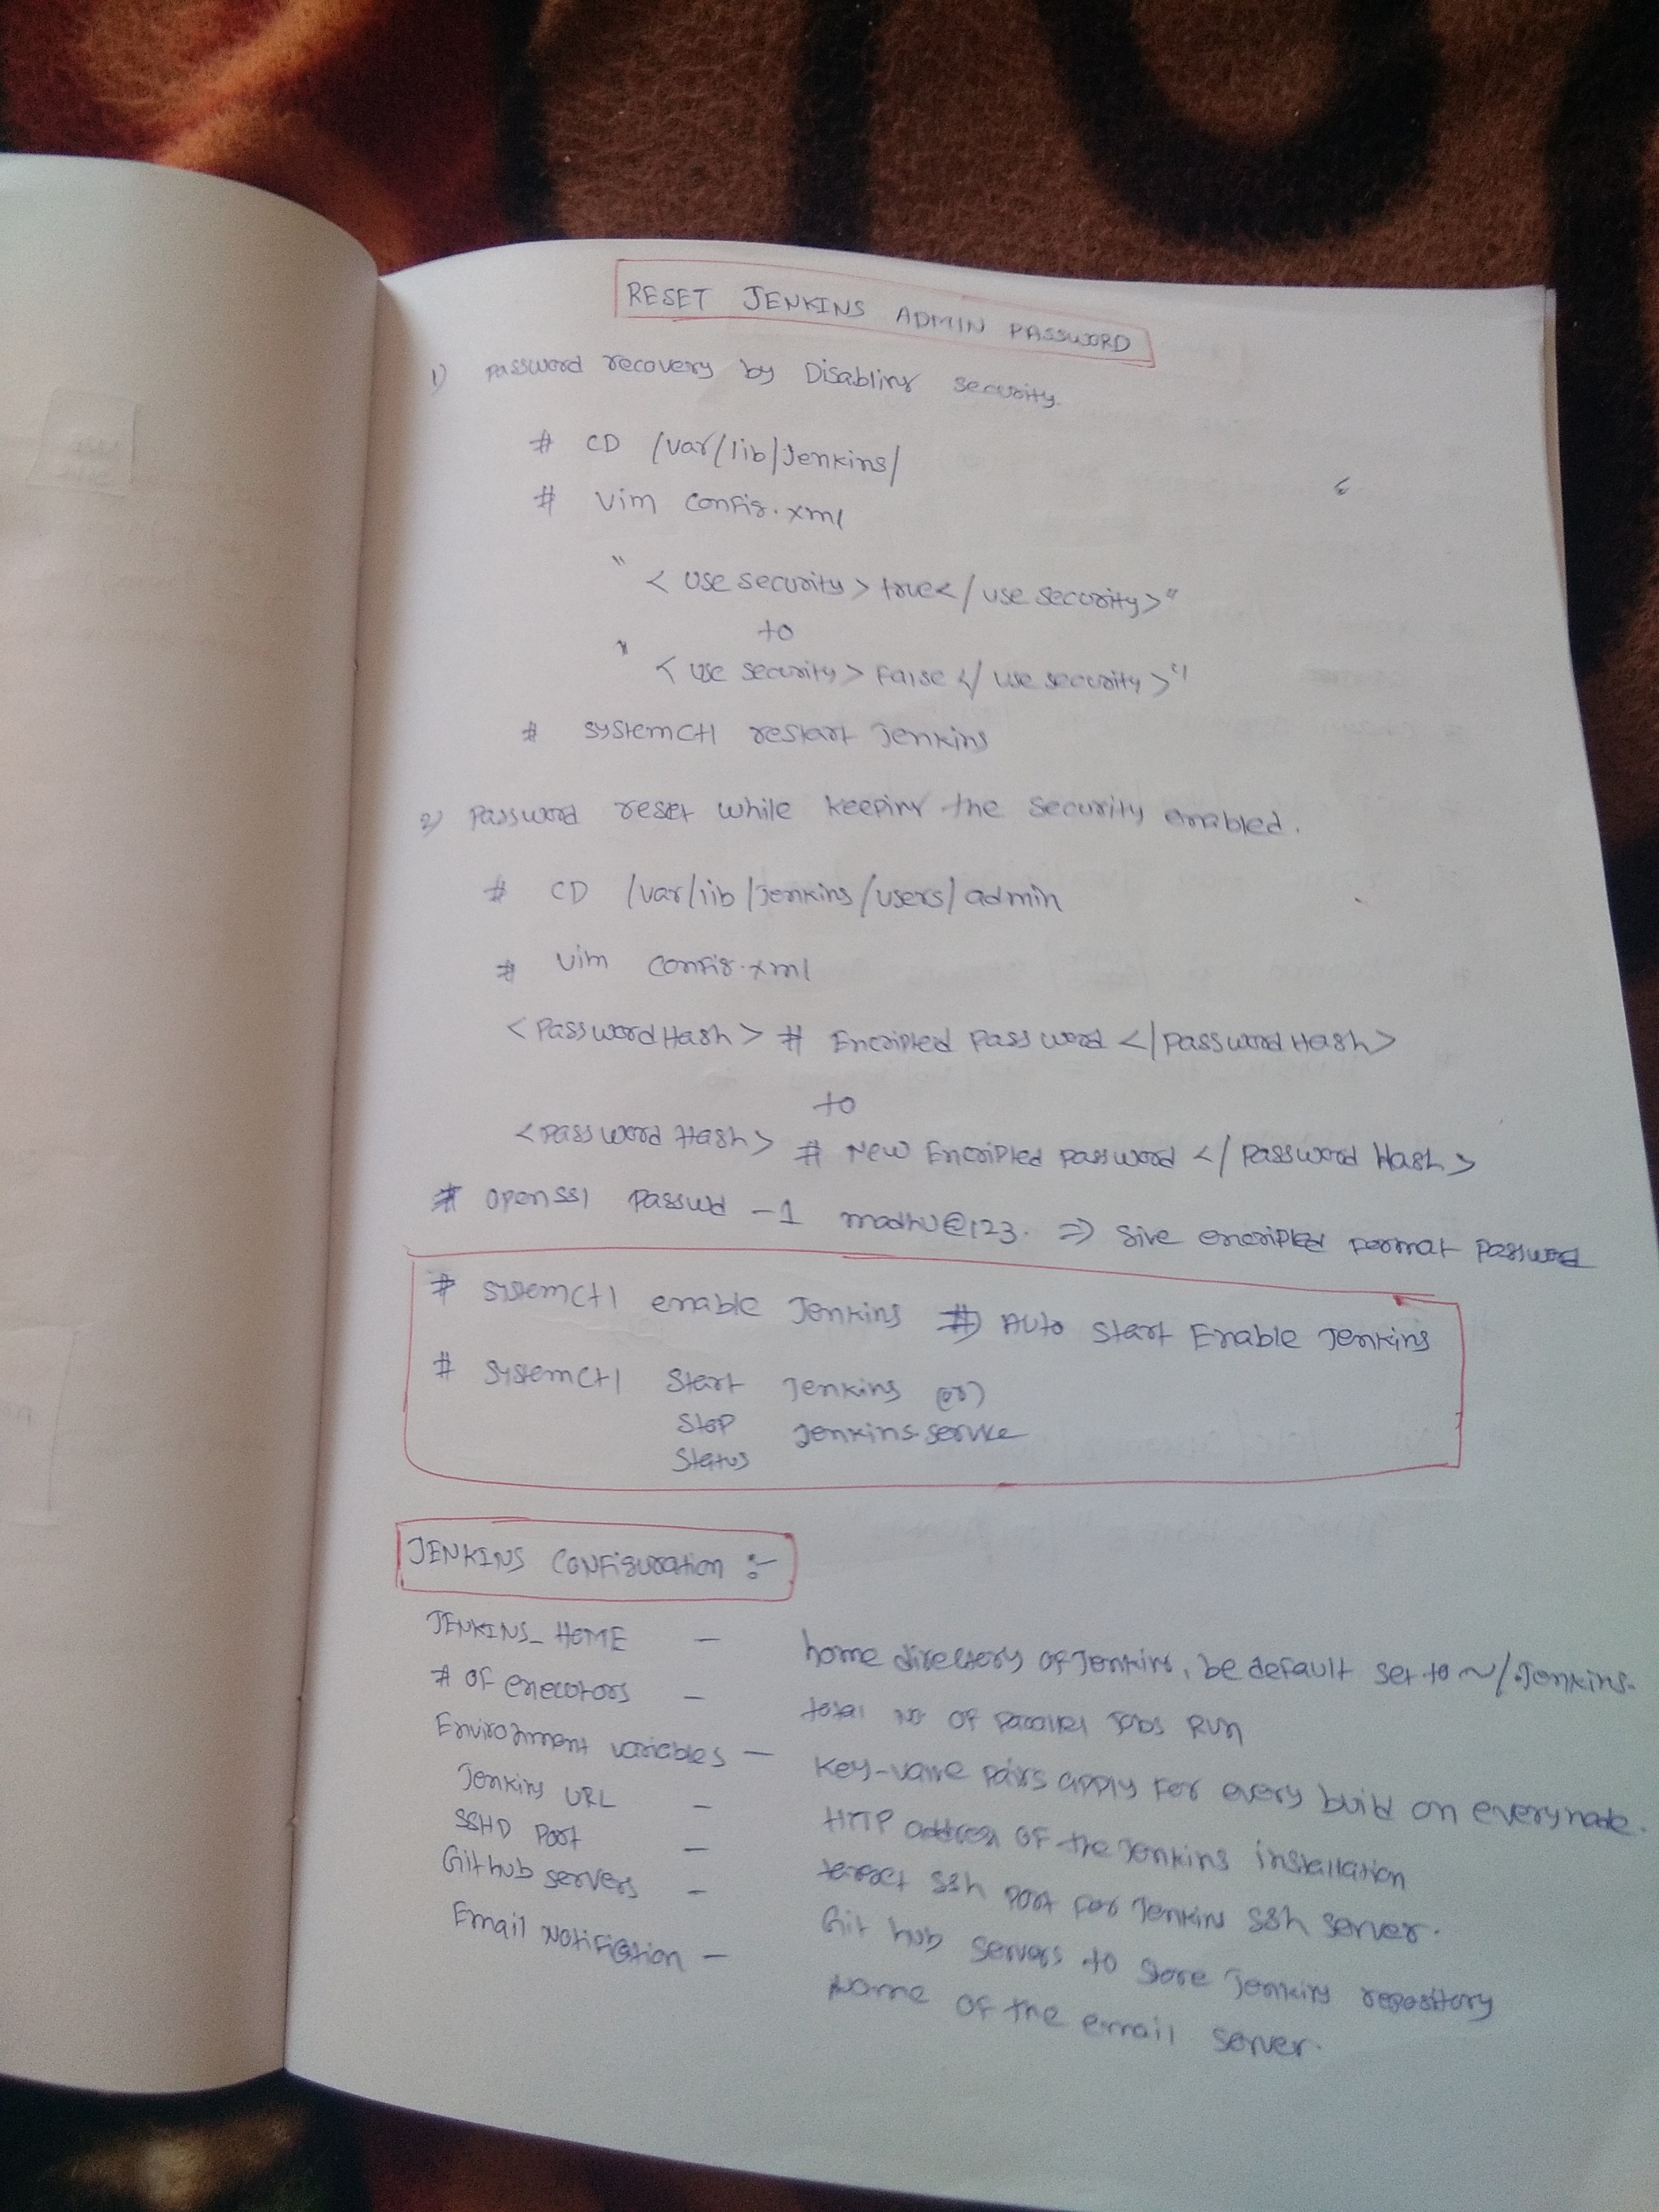 RESET JENKINS ADMIN PASSWORD
1) Password recovery by Disabling security.
# CD /var/lib/Jenkins/
# vim config.xml
" < use security > true < / use security > "
to
" < use security > False < / use security > "
# systemctl restart Jenkins
2) Password reset while keeping the security enabled.
# CD /var/lib/Jenkins/users/admin
# vim config.xml
< Password Hash > # Encripted Password < / Password Hash >
to
< Password Hash > # New Encripted Password < / Password Hash >
# openssl passwd -1 madhu@123. => Give encripted Format Password
# systemctl enable Jenkins #) Auto Start Enable Jenkins
# systemctl Start Jenkins (or)
Stop Jenkins.service
Status
JENKINS CONFiguration :-
JENKINS_HOME - home directory of Jenkins, be default set to ~/.Jenkins.
# of executors - total no of parallel Jobs Run
Environment variables - Key-value pairs apply for every build on everynode.
Jenkins URL - HTTP address of the Jenkins installation
SSHD Port - target ssh Port For Jenkins ssh server.
Github servers - Git hub servers to store Jenkins repository
Email Notification - Name of the email server.